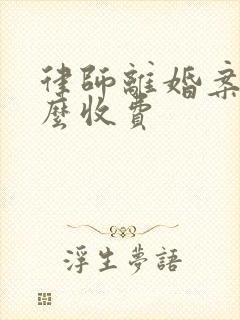 律師離婚案
麼收費
浮生夢語